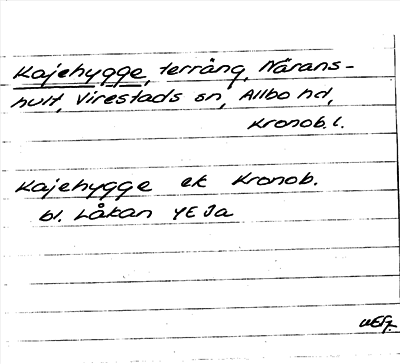 Kajehygge, terräng, Närans-
hult, Virestads sn, Allbo hd,
Kronob. l.
Kajehygge ek Kronob.
bl. Låkan YE Ja